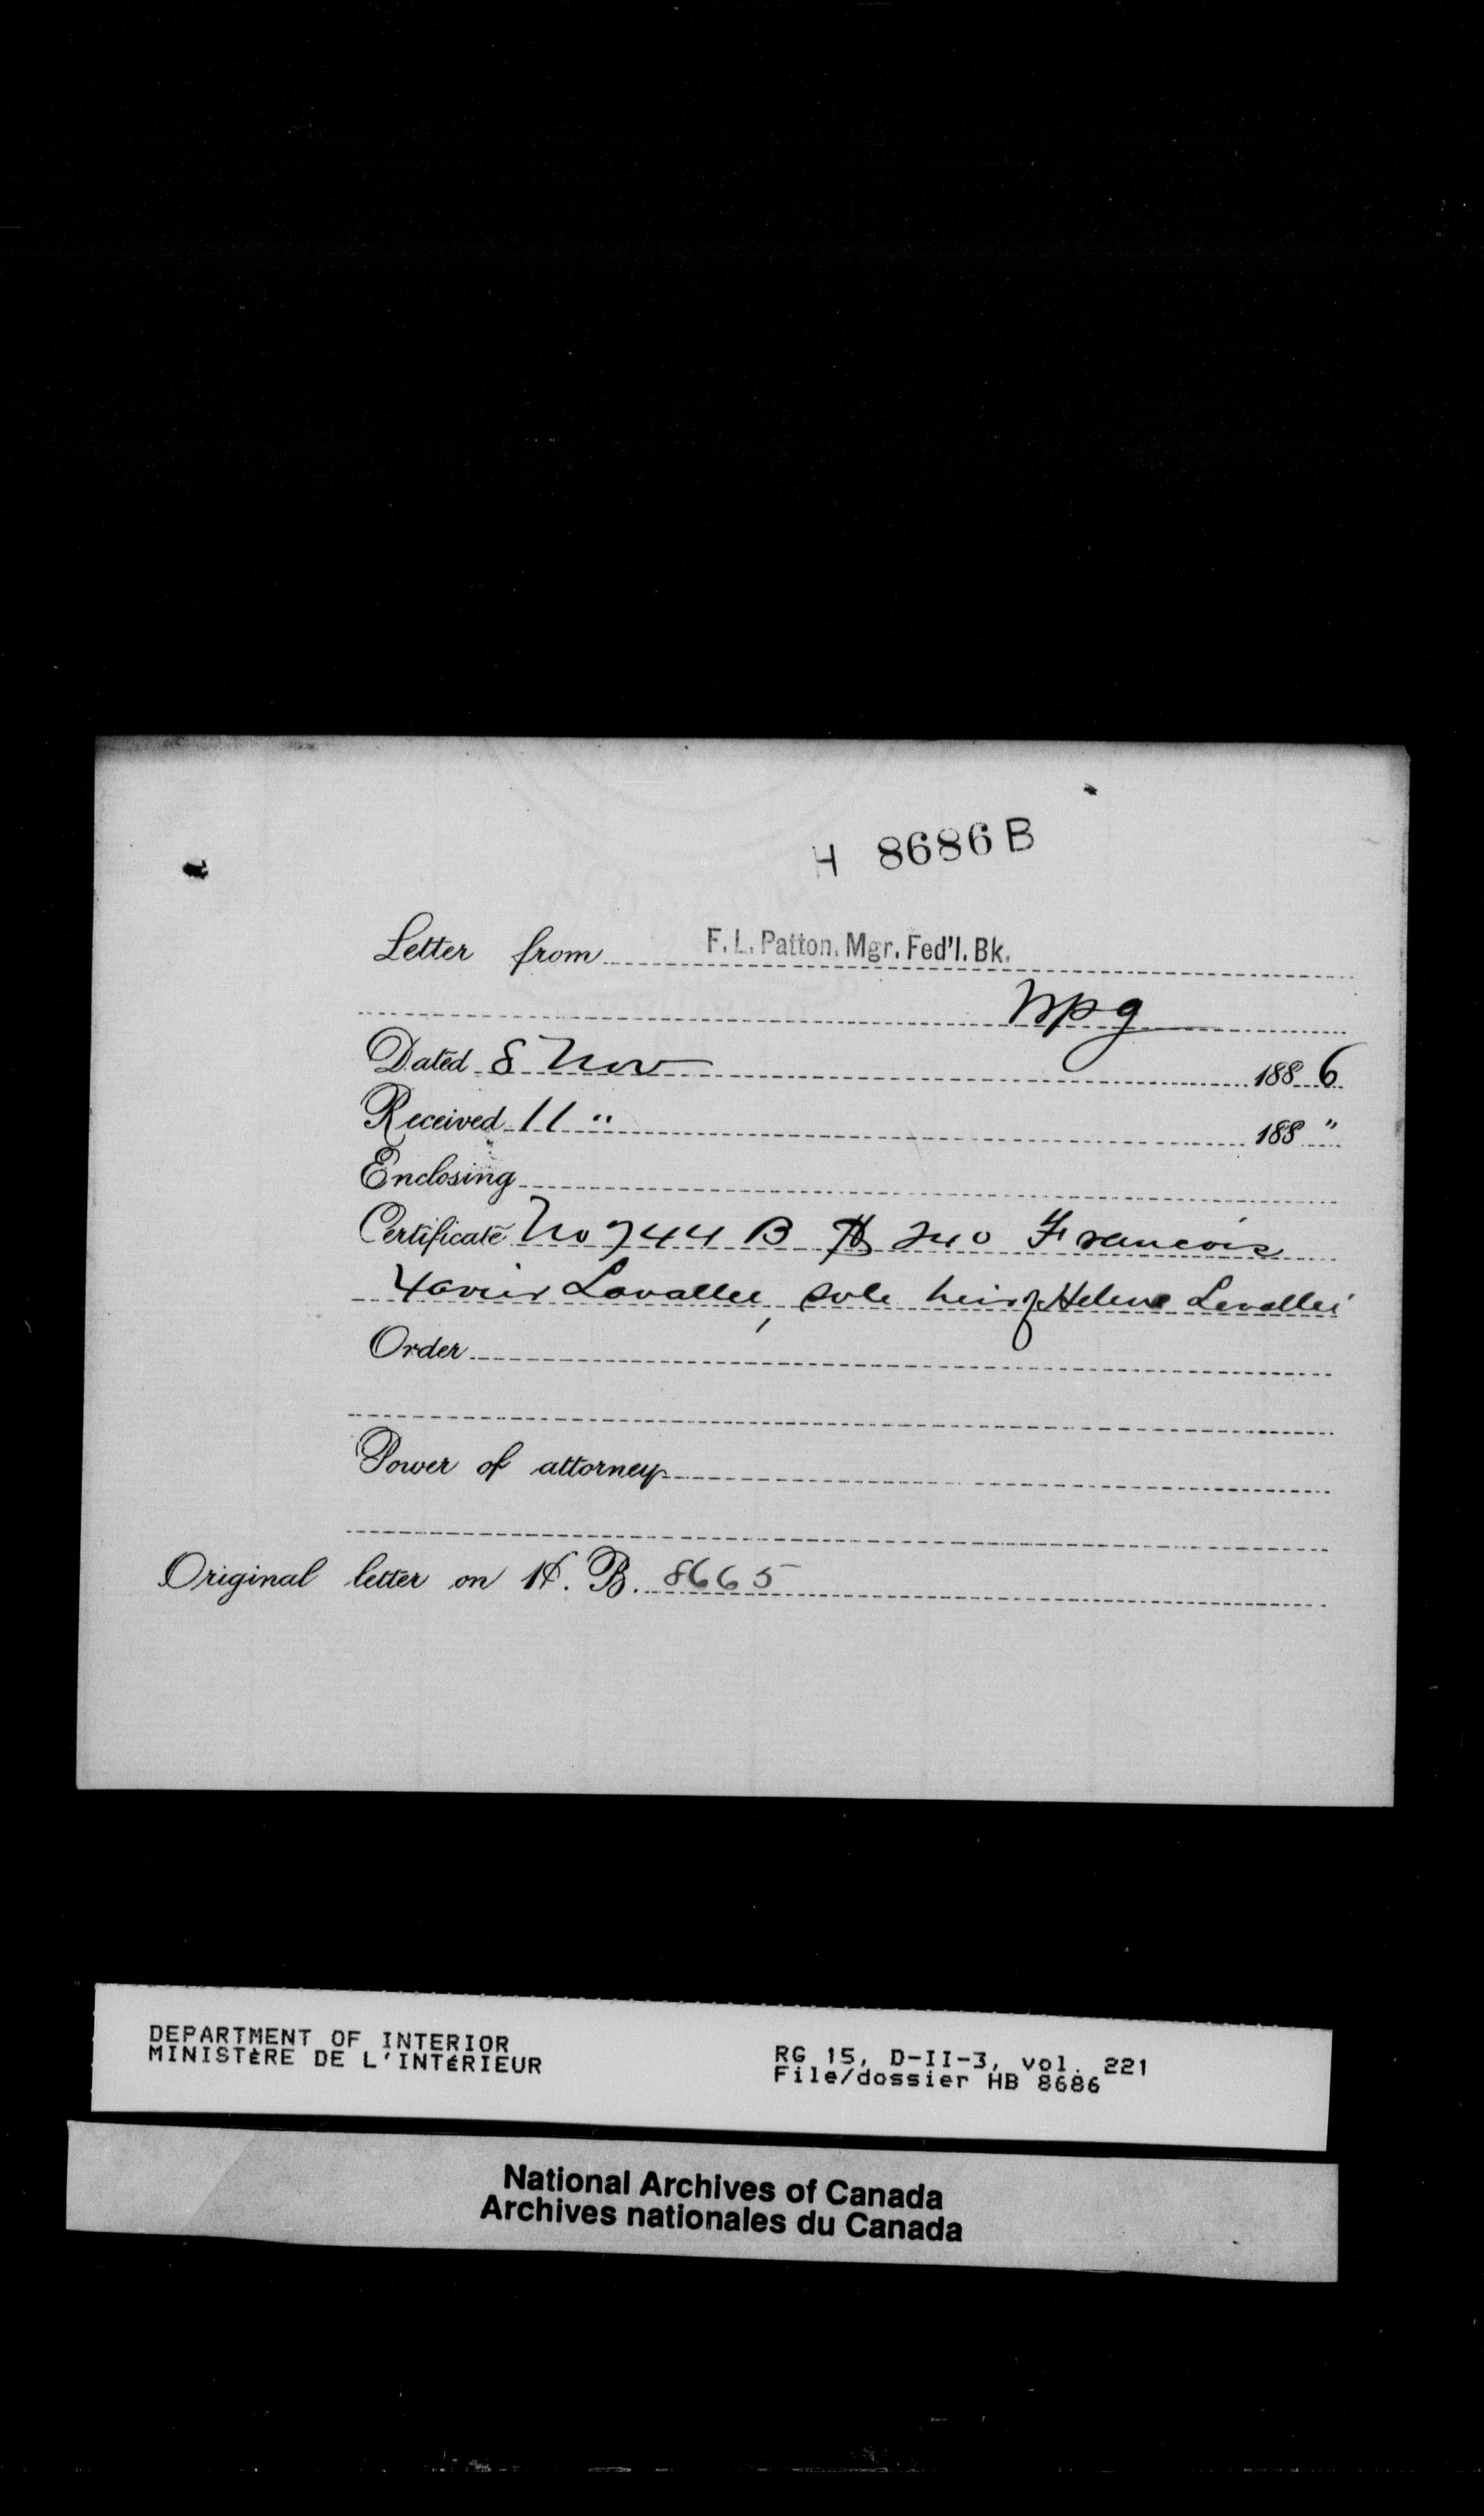 H 8686 B
Letter from F. L. Patton. Mgr. Fed'l. Bk.
Wpg
Dated 8 Nov 1886
Received 11 " 188 "
Enclosing
Certificate No 744 B $ 240 Francois
Xavier Lavallee, sole heir of Helene Lavallee
Order
Power of attorney
Original letter on H. B. 8665
DEPARTMENT OF INTERIOR
MINISTÈRE DE L'INTÉRIEUR
RG 15, D-II-3, vol. 221
File/dossier HB 8686
National Archives of Canada
Archives nationales du Canada